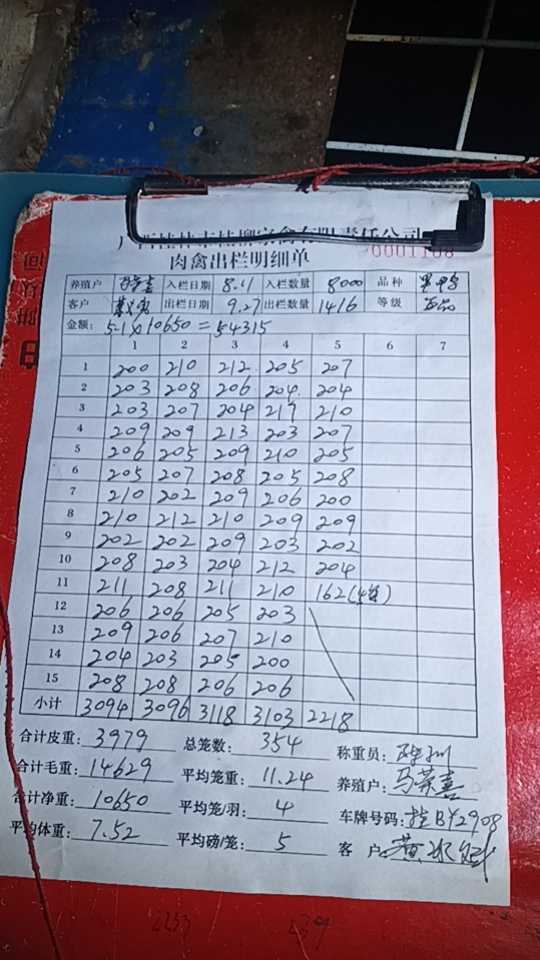 肉禽出栏明细单
0001108
养殖户 入栏日期 8.11 入栏数量 8000 品种
客户 出栏日期 9.27 出栏数量 1416 等级
金额: 5.1×10650=54315
1 2 3 4 5 6 7
1 200 210 212 205 207
2 203 208 206 204 204
3 203 207 204 217 210
4 209 209 213 203 207
5 206 205 209 210 205
6 205 207 208 205 208
7 210 202 209 206 200
8 210 212 210 209 209
9 202 202 209 203 202
10 208 203 204 212 204
11 211 208 211 210 162
12 206 206 205 203
13 209 206 207 210
14 204 203 205 200
15 208 208 206 206
小计 3094 3096 3118 3103 2218
合计皮重: 3979 总笼数: 354 称重员:
合计毛重: 14629 平均笼重: 11.24 养殖户:
合计净重: 10650 平均笼/羽: 4 车牌号码: 桂BY2908
平均体重: 7.52 平均磅/笼: 5 客 户: